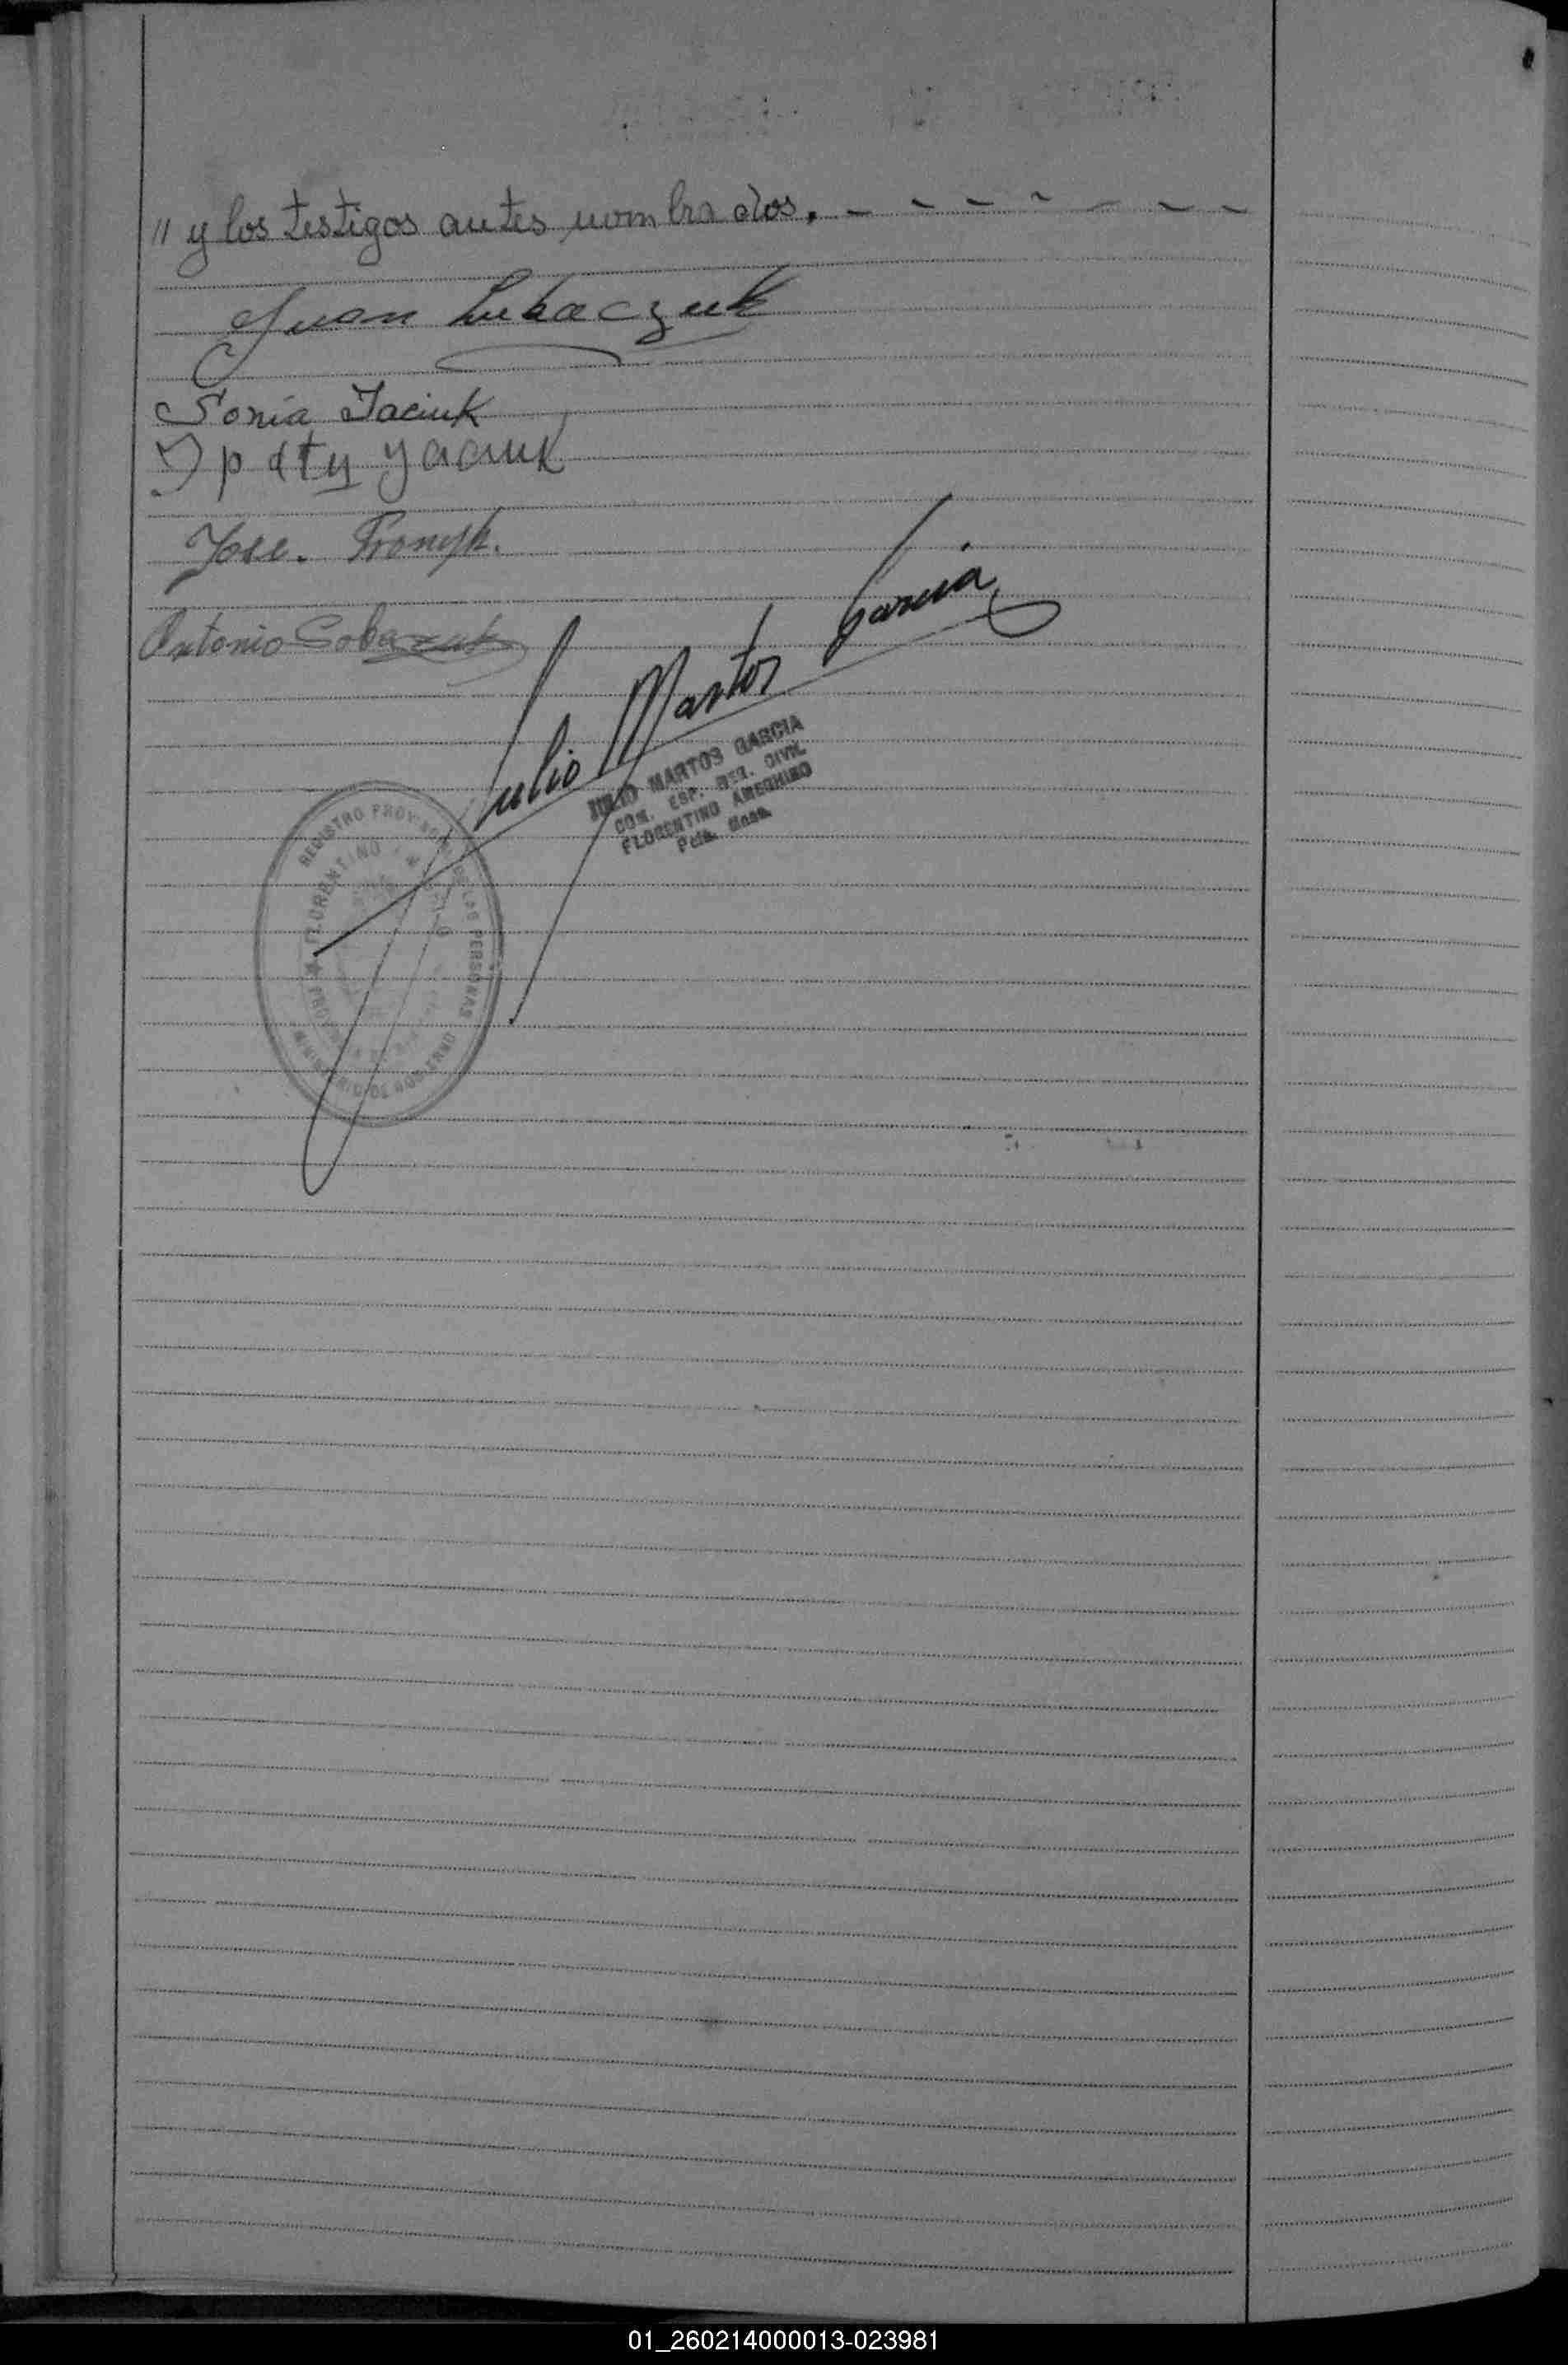 " y los testigos antes nombrados. - - - - - - -
Juan Lukaczuk
Sonia Jaciuk
yaciuk
Jose. Fronyk.
Antonio Sobczuk
Julio Martos Garcia
JULIO MARTOS GARCIA
COM. ESP. REG. CIVIL
FLORENTINO AMEGHINO
Pcia. Mnes.
REGISTRO PROVINCIAL DE LAS PERSONAS
MINISTERIO DE GOBIERNO
FLORENTINO
★
01_260214000013-023981